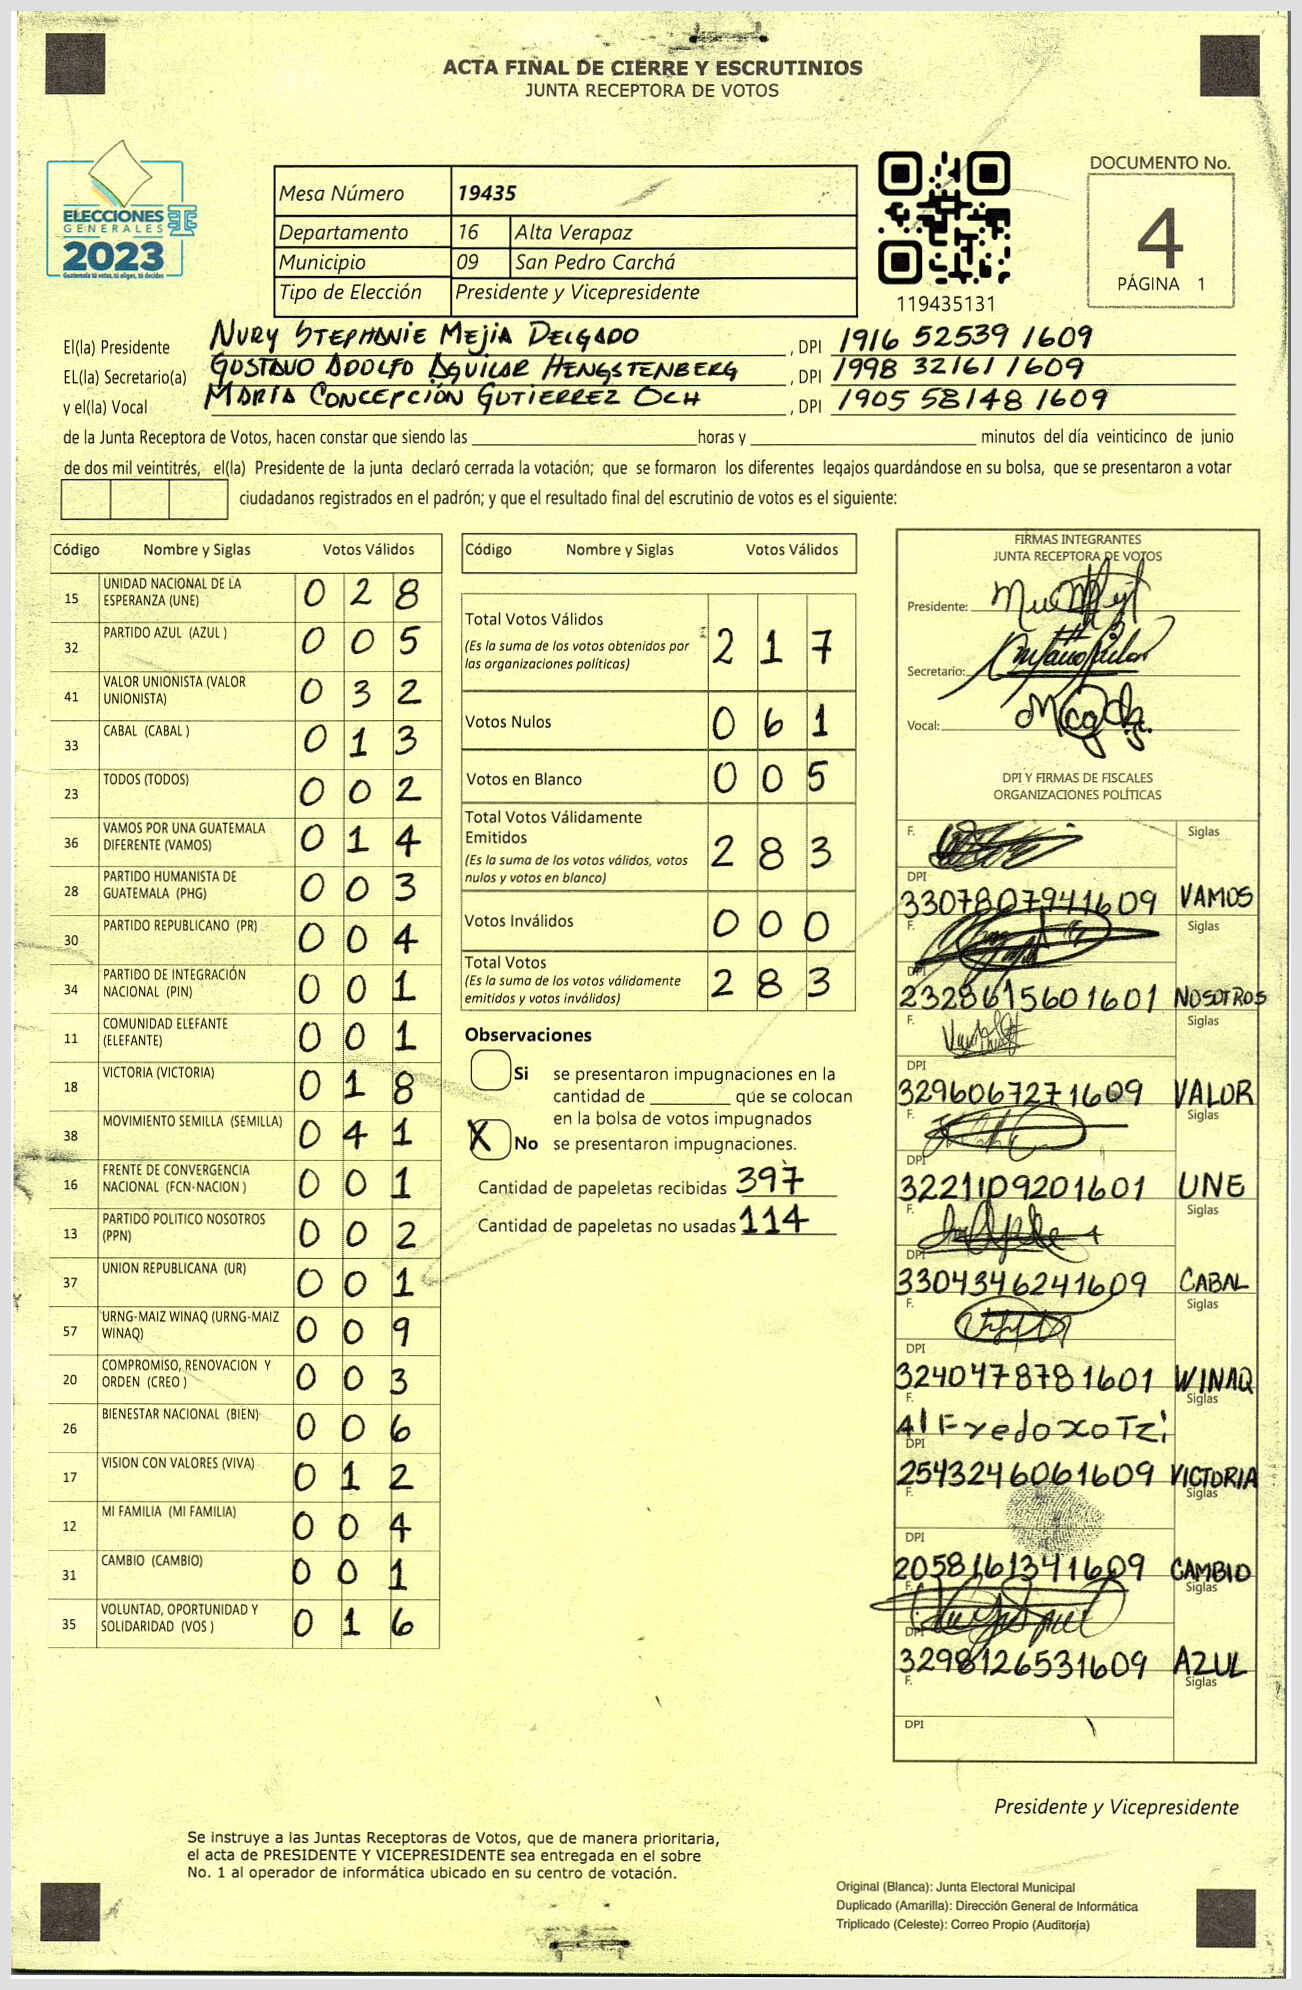 ACTA FINAL DE CIERRE Y ESCRUTINIOS
JUNTA RECEPTORA DE VOTOS
ELECCIONES
GENERALES
2023
Guatemala tú votas, tú eliges, tú decides
Mesa Número 19435
Departamento 16 Alta Verapaz
Municipio 09 San Pedro Carchá
Tipo de Elección Presidente y Vicepresidente
119435131
DOCUMENTO No.
4
PÁGINA 1
El(la) Presidente NURY STEPHANIE MEJIA DELGADO, DPI 1916 52539 1609
EL(la) Secretario(a) GUSTAVO ADOLFO AGUILAR HENGSTENBERG, DPI 1998 32161 1609
y el(la) Vocal MARÍA CONCEPCIÓN GUTIERREZ OCH, DPI 1905 58148 1609
de la Junta Receptora de Votos, hacen constar que siendo las ____ horas y ____ minutos del día veinticinco de junio
de dos mil veintitrés, el(la) Presidente de la junta declaró cerrada la votación; que se formaron los diferentes legajos quardándose en su bolsa, que se presentaron a votar
ciudadanos registrados en el padrón; y que el resultado final del escrutinio de votos es el siguiente:
Código Nombre y Siglas Votos Válidos
15 UNIDAD NACIONAL DE LA ESPERANZA (UNE) 0 2 8
32 PARTIDO AZUL (AZUL ) 0 0 5
41 VALOR UNIONISTA (VALOR UNIONISTA) 0 3 2
33 CABAL (CABAL ) 0 1 3
23 TODOS (TODOS) 0 0 2
36 VAMOS POR UNA GUATEMALA DIFERENTE (VAMOS) 0 1 4
28 PARTIDO HUMANISTA DE GUATEMALA (PHG) 0 0 3
30 PARTIDO REPUBLICANO (PR) 0 0 4
34 PARTIDO DE INTEGRACIÓN NACIONAL (PIN) 0 0 1
11 COMUNIDAD ELEFANTE (ELEFANTE) 0 0 1
18 VICTORIA (VICTORIA) 0 1 8
38 MOVIMIENTO SEMILLA (SEMILLA) 0 4 1
16 FRENTE DE CONVERGENCIA NACIONAL (FCN-NACION ) 0 0 1
13 PARTIDO POLITICO NOSOTROS (PPN) 0 0 2
37 UNION REPUBLICANA (UR) 0 0 1
57 URNG-MAIZ WINAQ (URNG-MAIZ WINAQ) 0 0 9
20 COMPROMISO, RENOVACION Y ORDEN (CREO ) 0 0 3
26 BIENESTAR NACIONAL (BIEN) 0 0 6
17 VISION CON VALORES (VIVA) 0 1 2
12 MI FAMILIA (MI FAMILIA) 0 0 4
31 CAMBIO (CAMBIO) 0 0 1
35 VOLUNTAD, OPORTUNIDAD Y SOLIDARIDAD (VOS ) 0 1 6
Código Nombre y Siglas Votos Válidos
Total Votos Válidos 2 1 7
(Es la suma de los votos obtenidos por
las organizaciones políticas)
Votos Nulos 0 6 1
Votos en Blanco 0 0 5
Total Votos Válidamente
Emitidos 2 8 3
(Es la suma de los votos válidos, votos
nulos y votos en blanco)
Votos Inválidos 0 0 0
Total Votos 2 8 3
(Es la suma de los votos válidamente
emitidos y votos inválidos)
Observaciones
Si se presentaron impugnaciones en la
cantidad de ____ que se colocan
en la bolsa de votos impugnados
X No se presentaron impugnaciones.
Cantidad de papeletas recibidas 397
Cantidad de papeletas no usadas 114
FIRMAS INTEGRANTES
JUNTA RECEPTORA DE VOTOS
Presidente:
Secretario:
Vocal:
DPI Y FIRMAS DE FISCALES
ORGANIZACIONES POLÍTICAS
F. Siglas
DPI
3307807941609 VAMOS
F. Siglas
DPI
2328615601601 NOSOTROS
F. Siglas
DPI
3296067271609 VALOR
F. Siglas
DPI
3221109201601 UNE
F. Siglas
DPI
3304346241609 CABAL
F. Siglas
DPI
3240478781601 WINAQ
F. Siglas
AlFredo xo Tzi
DPI
2543246061609 VICTORIA
F. Siglas
DPI
2058161341609 CAMBIO
F. Siglas
DPI
3298126531609 AZUL
F. Siglas
DPI
Presidente y Vicepresidente
Se instruye a las Juntas Receptoras de Votos, que de manera prioritaria,
el acta de PRESIDENTE Y VICEPRESIDENTE sea entregada en el sobre
No. 1 al operador de informática ubicado en su centro de votación.
Original (Blanca): Junta Electoral Municipal
Duplicado (Amarilla): Dirección General de Informática
Triplicado (Celeste): Correo Propio (Auditoría)